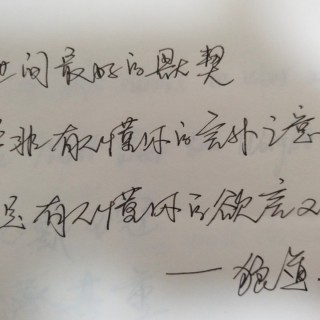 世间最好的默契
并非有人懂你的言外之意
而是有人懂你的欲言又